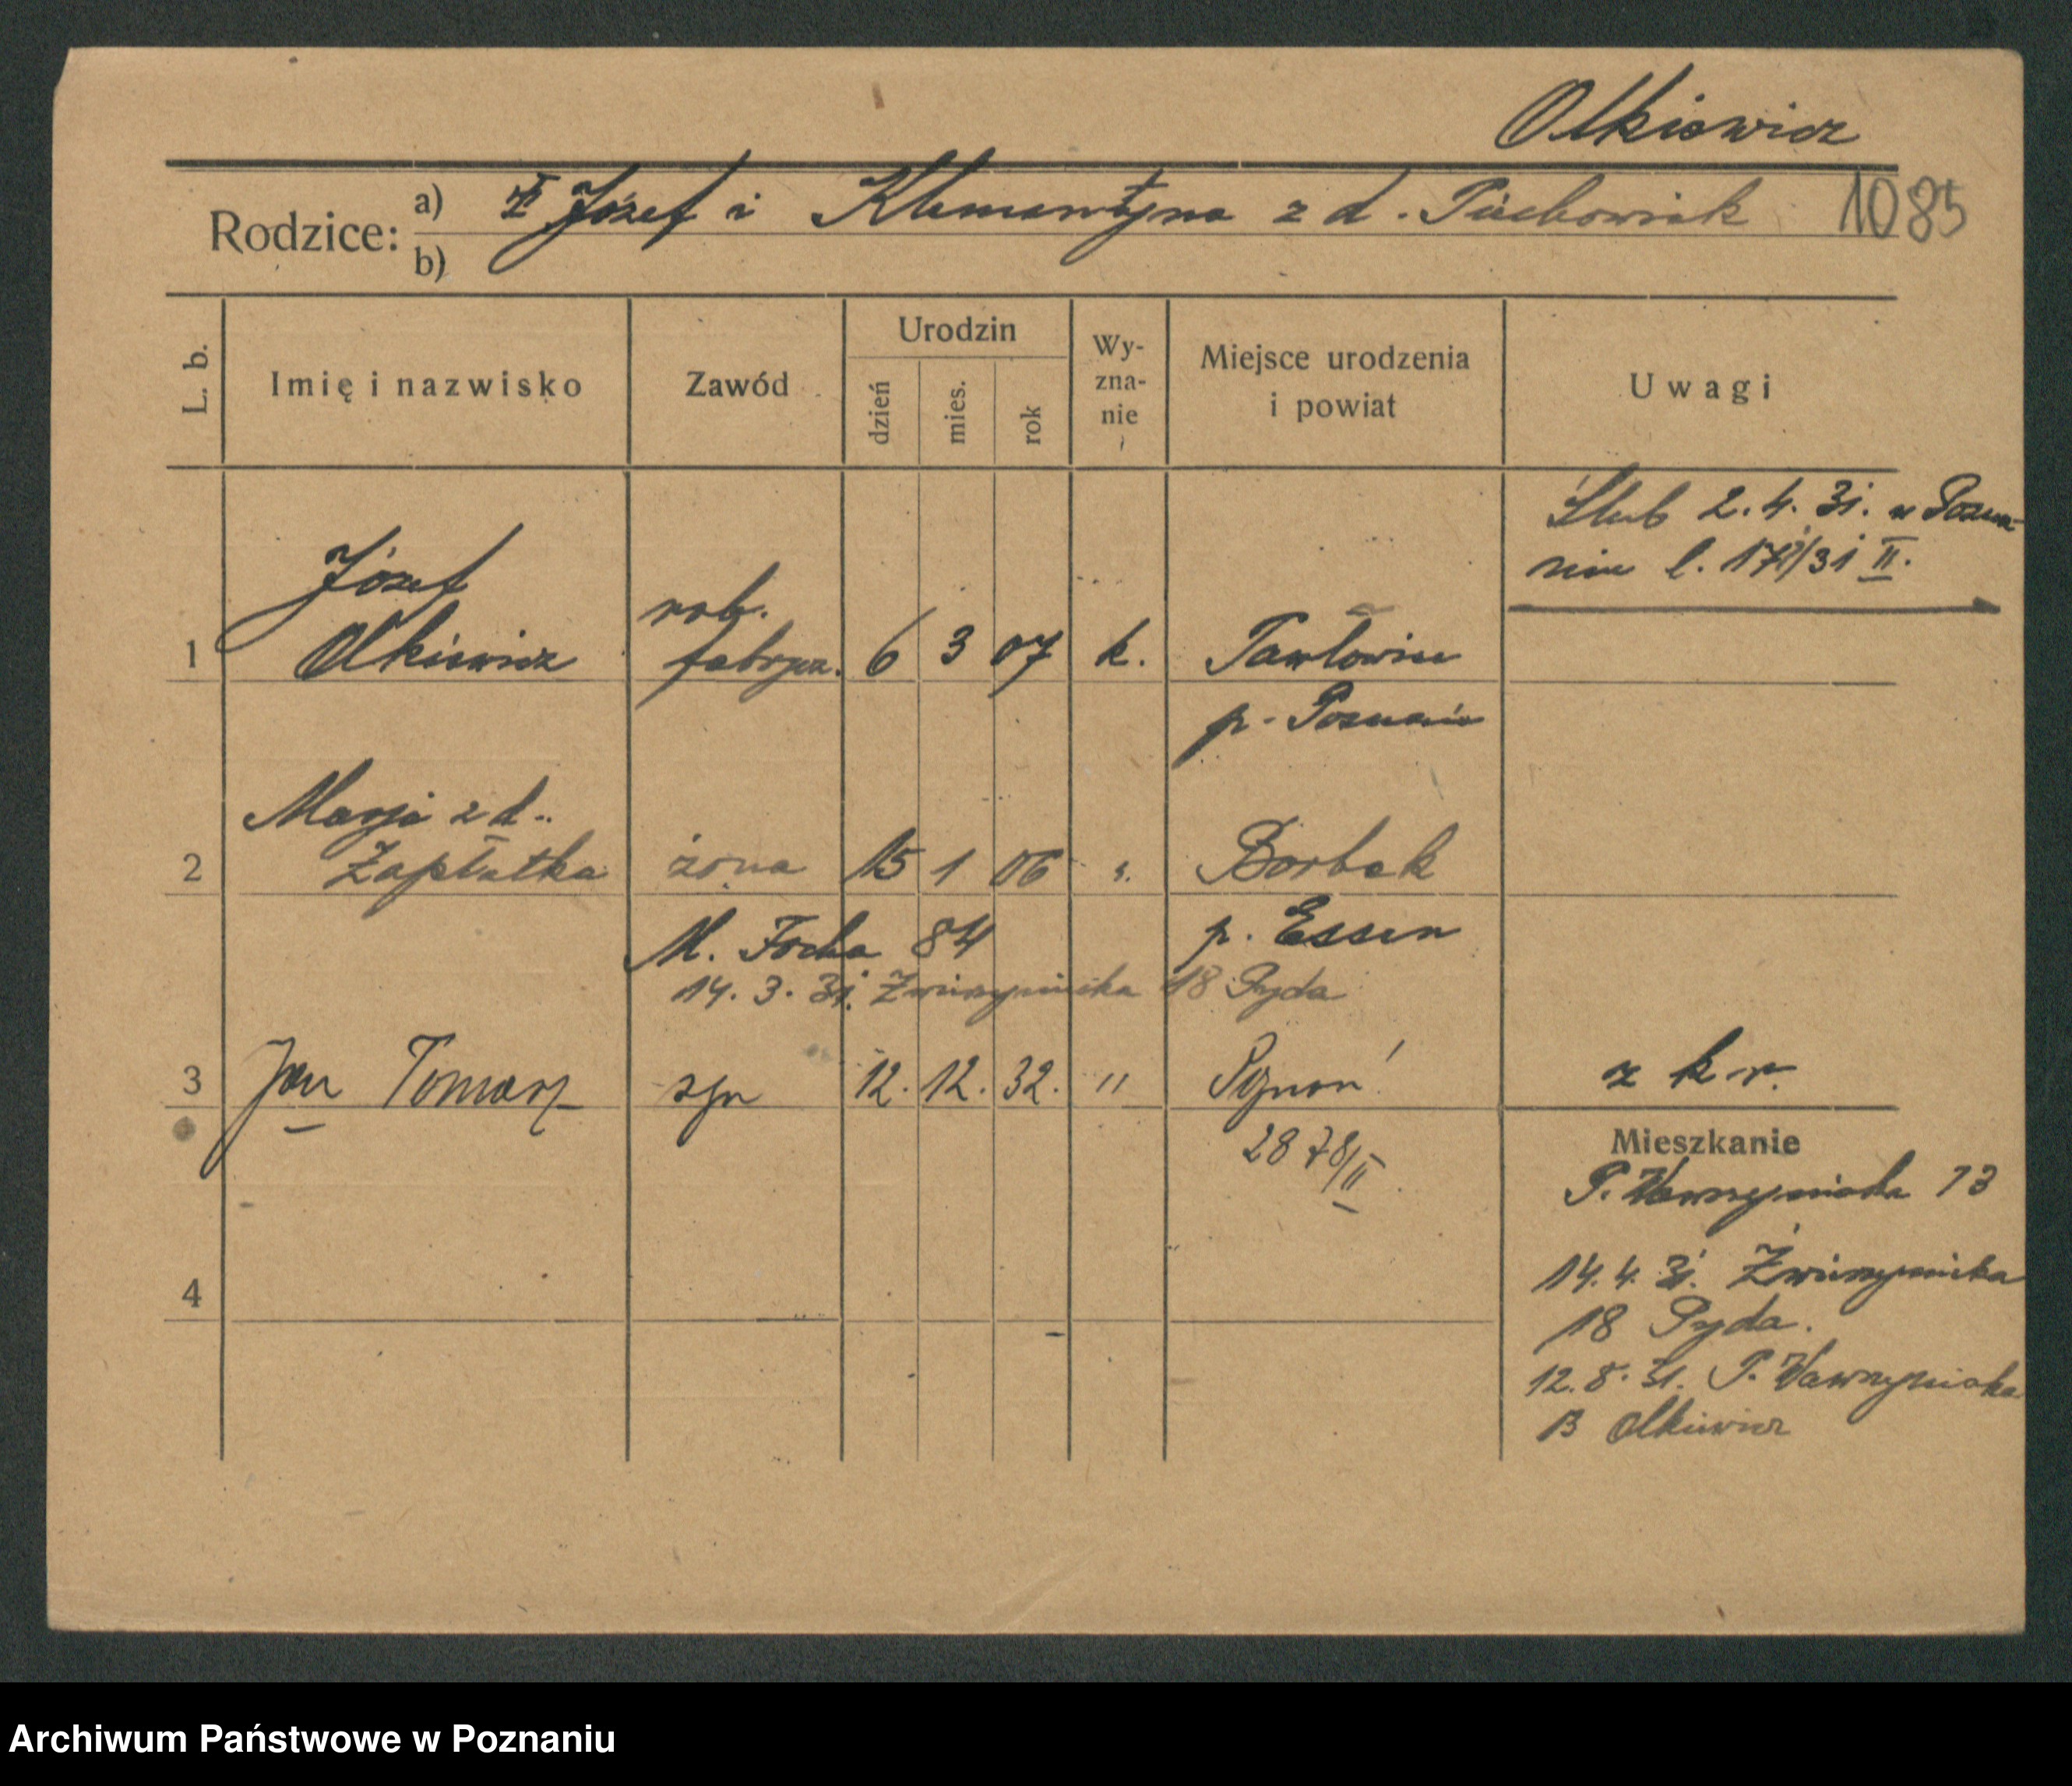 Olkiewicz
1085
Rodzice:
a) Józef i Klemantyna z d. Piechowiak
b)
L. b.
Imię i nazwisko
Zawód
Urodzin
dzień
mies.
rok
Wy-
zna-
nie
Miejsce urodzenia
i powiat
Uwagi
Ślub 2.4.31. w Pozna-
niu l. /31 II.
1
Józef
Olkiewicz
rob.
fabrycz.
6 3 07 k.
Pawłowice
p. Poznań
2
Marja z d.
Zapłatka
żona 15 1 06
Borbek
p. Essen
M. Focha 84
14. 3. 31. Zwierzyniecka 18 Pyda
3 Jan Tomasz syn 12. 12. 32. " Poznań z k. r.
2878/II
Mieszkanie
P. Wawrzyniaka 13
4
14.4.31. Zwierzyniecka
18 Pyda.
12.8.31. P. Wawrzyniaka
13 Olkiewicz
Archiwum Państwowe w Poznaniu